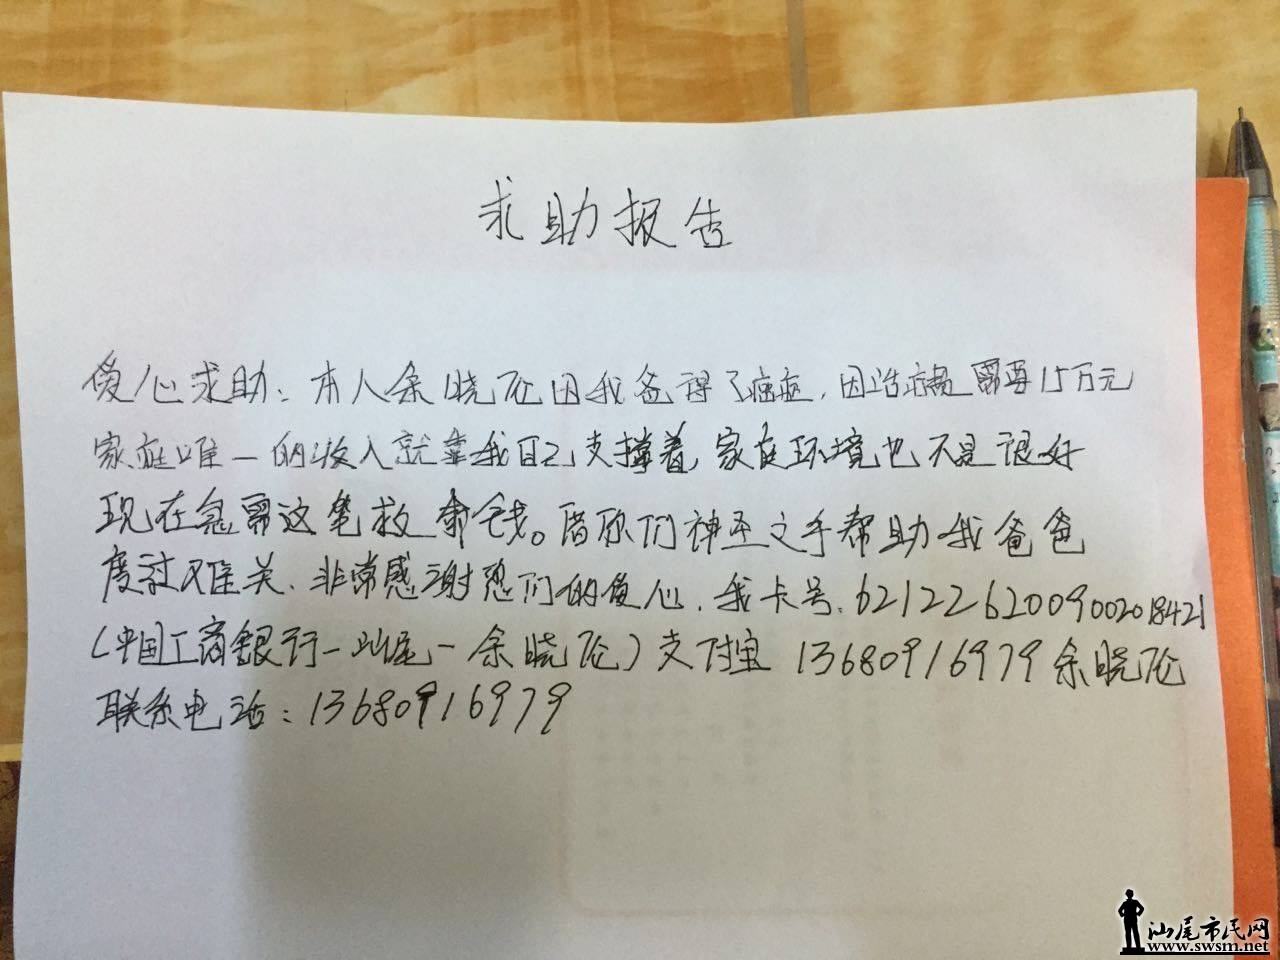 求助报告
爱心求助：本人余晓伦因我爸得了癌症，因治病需要15万元
家庭唯一的收入就靠我自己支撑着，家庭环境也不是很好
现在急需这笔救命钱。借你们神圣之手帮助我爸爸
度过难关、非常感谢您们的爱心，我卡号：6212262009002018421
（中国工商银行－汕尾－余晓伦）支付宝 13680916979余晓伦
联系电话：13680916979
汕尾市民网
www.swsm.net